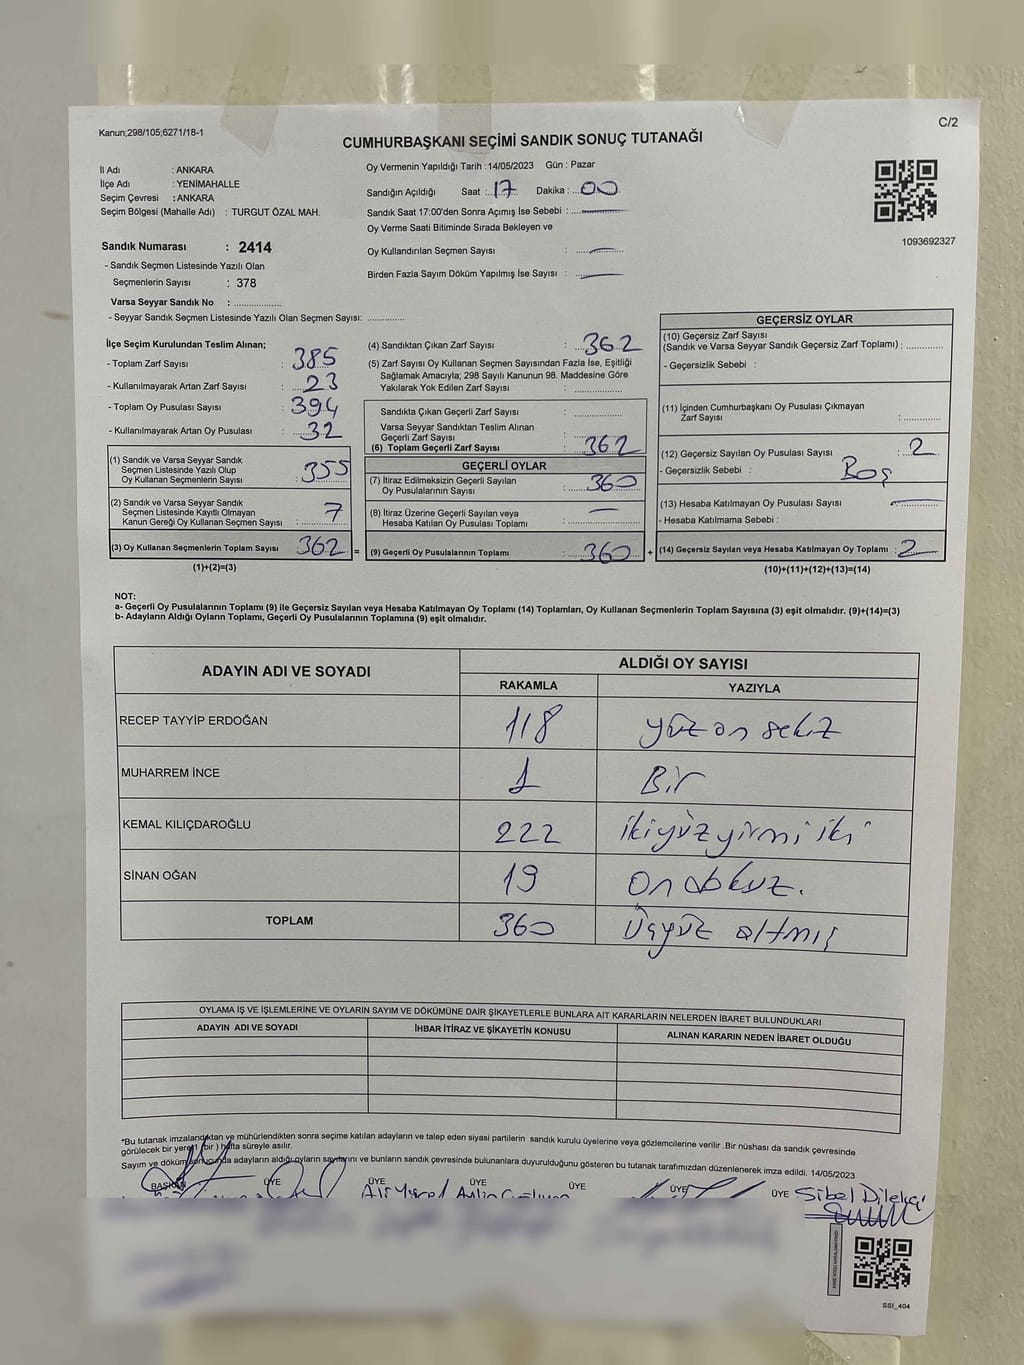 Kanun;298/105;6271/18-1
C/2
CUMHURBAŞKANI SEÇİMİ SANDIK SONUÇ TUTANAĞI
İl Adı : ANKARA
İlçe Adı : YENİMAHALLE
Seçim Çevresi : ANKARA
Seçim Bölgesi (Mahalle Adı) : TURGUT ÖZAL MAH.
Oy Vermenin Yapıldığı Tarih :14/05/2023 Gün : Pazar
Sandığın Açıldığı Saat : 17 Dakika : 00
Sandık Saat 17:00'den Sonra Açımış İse Sebebi :
Oy Verme Saati Bitiminde Sırada Bekleyen ve
Oy Kullandırılan Seçmen Sayısı :
Birden Fazla Sayım Döküm Yapılmış İse Sayısı :
1093692327
Sandık Numarası : 2414
- Sandık Seçmen Listesinde Yazılı Olan
Seçmenlerin Sayısı : 378
Varsa Seyyar Sandık No :
- Seyyar Sandık Seçmen Listesinde Yazılı Olan Seçmen Sayısı:
İlçe Seçim Kurulundan Teslim Alınan;
- Toplam Zarf Sayısı : 385
- Kullanılmayarak Artan Zarf Sayısı : 23
- Toplam Oy Pusulası Sayısı : 394
- Kullanılmayarak Artan Oy Pusulası : 32
(1) Sandık ve Varsa Seyyar Sandık
Seçmen Listesinde Yazılı Olup
Oy Kullanan Seçmenlerin Sayısı : 355
(2) Sandık ve Varsa Seyyar Sandık
Seçmen Listesinde Kayıtlı Olmayan
Kanun Gereği Oy Kullanan Seçmen Sayısı : 7
(3) Oy Kullanan Seçmenlerin Toplam Sayısı 362 =
(1)+(2)=(3)
(4) Sandıktan Çıkan Zarf Sayısı : 362
(5) Zarf Sayısı Oy Kullanan Seçmen Sayısından Fazla İse, Eşitliği
Sağlamak Amacıyla; 298 Sayılı Kanunun 98. Maddesine Göre
Yakılarak Yok Edilen Zarf Sayısı :
Sandıkta Çıkan Geçerli Zarf Sayısı :
Varsa Seyyar Sandıktan Teslim Alınan
Geçerli Zarf Sayısı :
(6) Toplam Geçerli Zarf Sayısı : 362
GEÇERLİ OYLAR
(7) İtiraz Edilmeksizin Geçerli Sayılan
Oy Pusulalarının Sayısı : 360
(8) İtiraz Üzerine Geçerli Sayılan veya
Hesaba Katılan Oy Pusulası Toplamı : —
(9) Geçerli Oy Pusulalarının Toplamı : 360 +
GEÇERSİZ OYLAR
(10) Geçersiz Zarf Sayısı
(Sandık ve Varsa Seyyar Sandık Geçersiz Zarf Toplamı) :
- Geçersizlik Sebebi :
(11) İçinden Cumhurbaşkanı Oy Pusulası Çıkmayan
Zarf Sayısı :
(12) Geçersiz Sayılan Oy Pusulası Sayısı : 2
- Geçersizlik Sebebi : Boş
(13) Hesaba Katılmayan Oy Pusulası Sayısı :
- Hesaba Katılmama Sebebi :
(14) Geçersiz Sayılan veya Hesaba Katılmayan Oy Toplamı : 2
(10)+(11)+(12)+(13)=(14)
NOT:
a- Geçerli Oy Pusulalarının Toplamı (9) ile Geçersiz Sayılan veya Hesaba Katılmayan Oy Toplamı (14) Toplamları, Oy Kullanan Seçmenlerin Toplam Sayısına (3) eşit olmalıdır. (9)+(14)=(3)
b- Adayların Aldığı Oyların Toplamı, Geçerli Oy Pusulalarının Toplamına (9) eşit olmalıdır.
ADAYIN ADI VE SOYADI ALDIĞI OY SAYISI
RAKAMLA YAZIYLA
RECEP TAYYİP ERDOĞAN 118 yüz on sekiz
MUHARREM İNCE 1 Bir
KEMAL KILIÇDAROĞLU 222 ikiyüzyirmi iki
SİNAN OĞAN 19 On dokuz.
TOPLAM 360 Üçyüz altmış
OYLAMA İŞ VE İŞLEMLERİNE VE OYLARIN SAYIM VE DÖKÜMÜNE DAİR ŞİKAYETLERLE BUNLARA AİT KARARLARIN NELERDEN İBARET BULUNDUKLARI
ADAYIN ADI VE SOYADI İHBAR İTİRAZ VE ŞİKAYETİN KONUSU ALINAN KARARIN NEDEN İBARET OLDUĞU
*Bu tutanak imzalandıktan ve mühürlendikten sonra seçime katılan adayların ve talep eden siyasi partilerin sandık kurulu üyelerine veya gözlemcilerine verilir .Bir nüshası da sandık çevresinde
görülecek bir yere ( bir ) hafta süreyle asılır.
Sayım ve döküm sonucunda adayların aldığı oyların sayılarını ve bunların sandık çevresinde bulunanlara duyurulduğunu gösteren bu tutanak tarafımızdan düzenlenerek imza edildi. 14/05/2023
BAŞKAN ÜYE ÜYE ÜYE ÜYE ÜYE ÜYE
Sibel Dilekçi
SSI_404